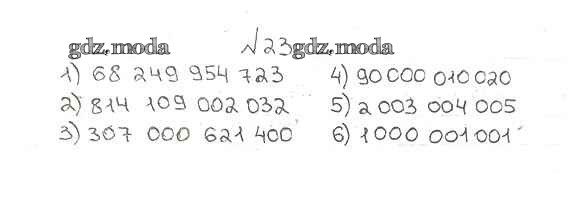 gdz.moda №23 gdz.moda
1) 68 249 954 723 4) 90 000 010 020
2) 814 109 002 032 5) 2 003 004 005
3) 307 000 621 400 6) 1 000 001 001